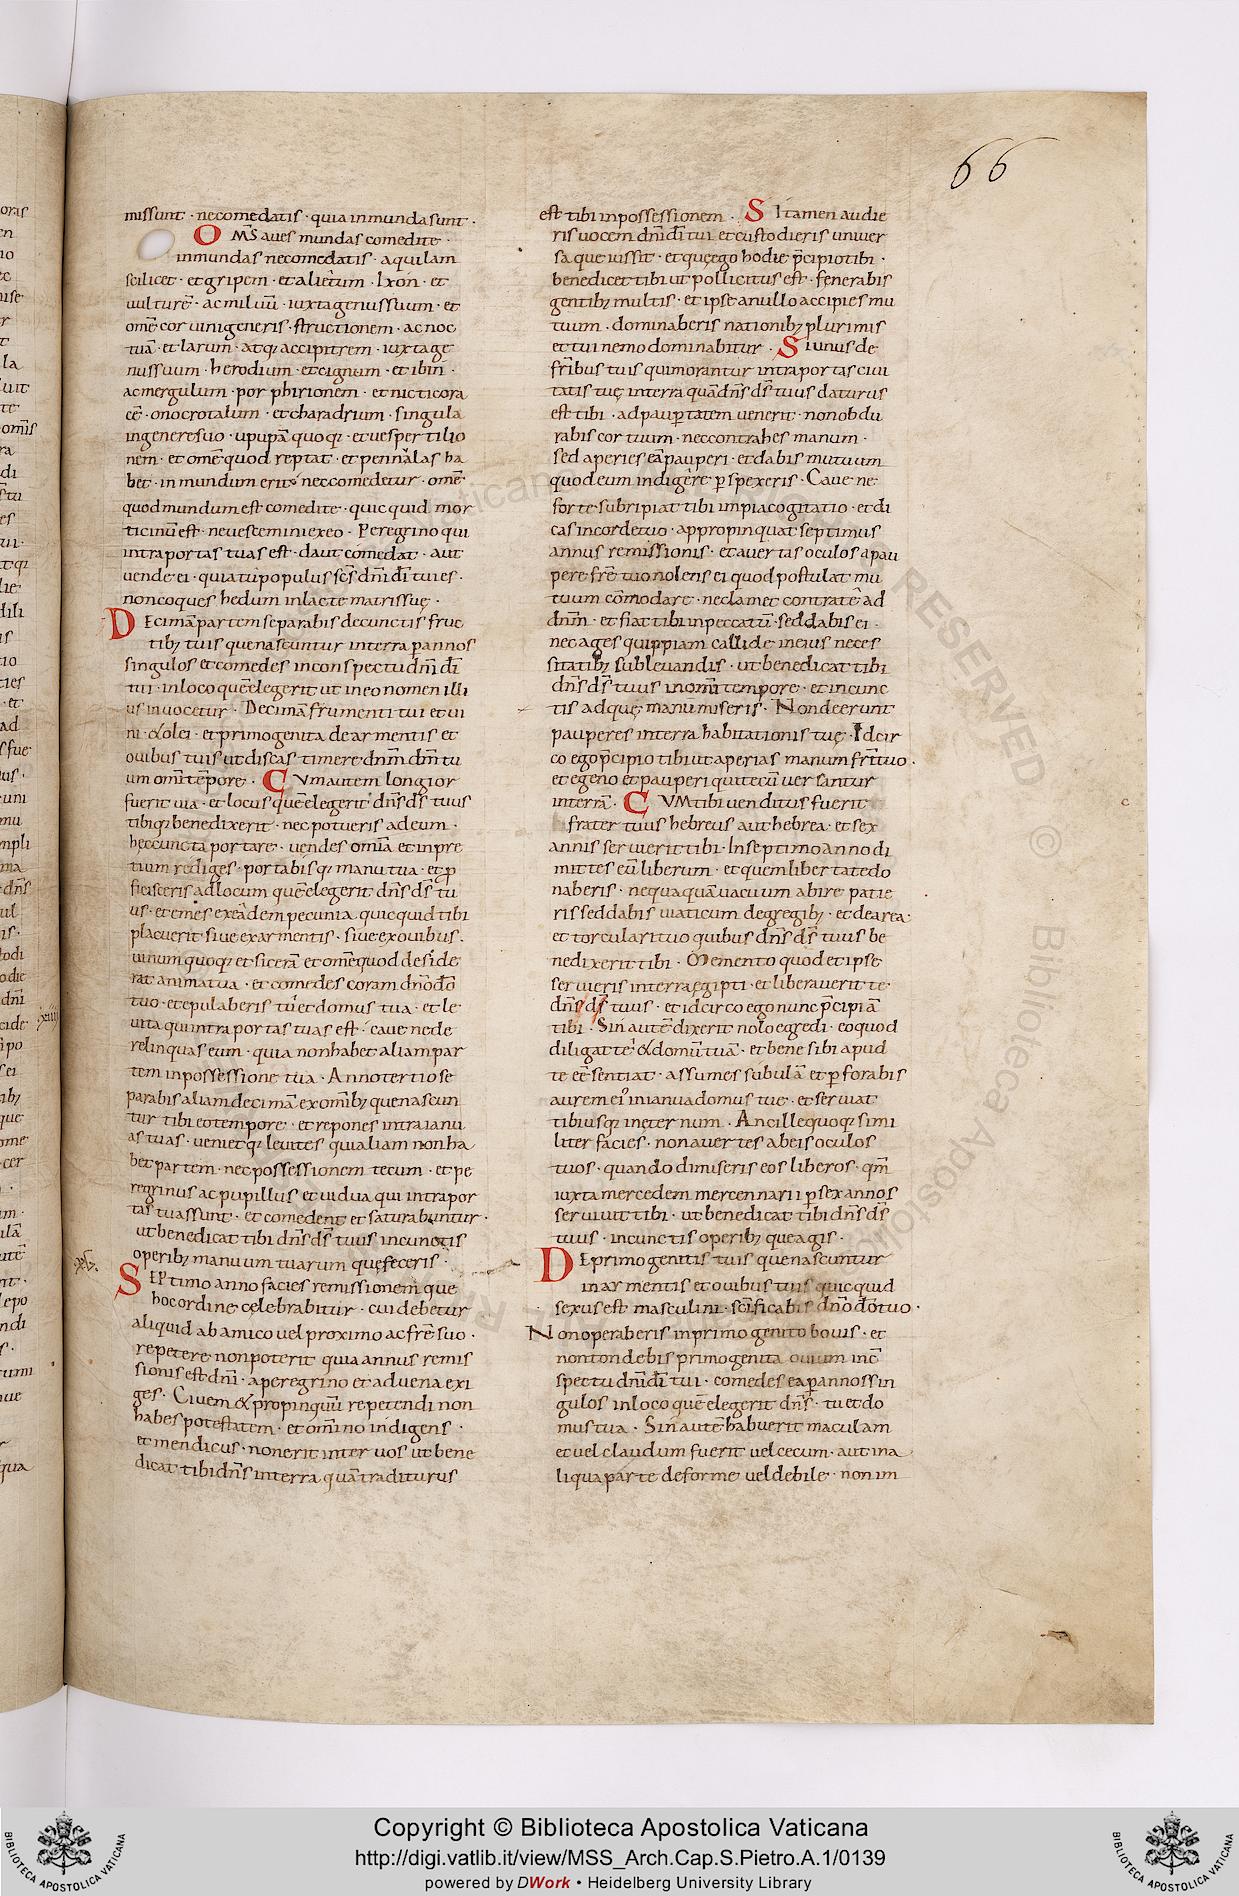 66
missunt · necomedatis · quia inmunda sunt ·
OMS aues mundas comedite ·
inmundas necomedatis · aquilam
scilicet · et gripem · et alietum · Ixon · et
uulturē · ac miluū · iuxta genus suum · et
omē coruini generis · structionem · ac noc
tuā · et larum · atq; accipitrem · iuxta ge
nus suum · herodium · et cignum · et ibin ·
ac mergulum · porphirionem · et nicticora
cē · onocrotalum · et charadrium · singula
in genere suo · upupā quoq; · et uespertilio
nem · et omē quod reptat · et pennulas ha
bet · inmundum erit · nec comedetur · omē
quod mundum est comedite · quicquid mor
ticinū est · ne uescemini ex eo · Peregrino qui
intra portas tuas est · da ut comedat · aut
uende ei · quia tu populus scs dni di tui es ·
non coques hedum in lacte matris suę ·
Decimā partem separabis de cunctis fruc
tib; tuis que nascuntur in terra p annos
singulos et comedes in conspectu dni di
tui · in loco quē elegerit ut in eo nomen illi
us inuocetur · Decimā frumenti tui et ui
ni · & olei · et primogenita de armentis et
ouibus tuis ut discas timere dnm dm tu
um omi tēpore · CVm autem longior
fuerit uia · et locus quē elegerit dns ds tuus
tibiq; benedixerit · nec potueris ad eum ·
hec cuncta portare · uendes omia et in pre
tium rediges · portabisq; manu tua · et p
ficisceris ad locum quē elegerit dns ds tu
us · et emes ex eadem pecunia quicquid tibi
placuerit siue ex armentis · siue ex ouibus ·
uinum quoq; et sicerā et omē quod deside
rat anima tua · et comedes coram dno do
tuo · et epulaberis tu et domus tua · et le
uita qui intra portas tuas est · caue ne de
relinquas eum · quia non habet aliam par
tem in possessione tua · Anno tertio se
parabis aliam decimā ex omib; que nascun
tur tibi eo tempore · et repones intra ianu
as tuas · uenietq; leuites qui aliam non ha
bet partem · nec possessionem tecum · et pe
regrinus ac pupillus et uidua qui intra por
tas tuas sunt · et comedent et saturabuntur ·
ut benedicat tibi dns ds tuus in cunctis
operib; manuum tuarum que feceris ·
·xv·
SEPtimo anno facies remissionem que
hoc ordine celebrabitur · cui debetur
aliquid ab amico uel proximo ac fre suo ·
repetere non poterit quia annus remis
sionis est dni · a peregrino et aduena exi
ges · Ciuem & propinquū repetendi non
habes potestatem · et omino indigens ·
et mendicus · non erit inter uos ut bene
dicat tibi dns in terra quā traditurus
est tibi in possessionem · SI tamen audie
ris uocem dni di tui et custodieris uniuer
sa que iussit · et quę ego hodie pcipio tibi ·
benedicet tibi ut pollicitus est · fenerabis
gentib; multis · et ipse a nullo accipies mu
tuum · dominaberis nationib; plurimis
et tui nemo dominabitur · Si unus de
fribus tuis qui morantur intra portas ciui
tatis tuę in terra quā dns ds tuus daturus
est tibi · ad paupertatem uenerit · non obdu
rabis cor tuum · nec contrahes manum ·
sed aperies eā pauperi · et dabis mutuum
quod eum indigere pspexeris · Caue ne
forte subripiat tibi impia cogitatio · et di
cas in corde tuo · appropinquat septimus
annus remissionis · et auertas oculos a pau
pere fre tuo nolens ei quod postulat mu
tuum cōmodare · ne clamet contra te ad
dnm · et fiat tibi in peccatū · sed dabis ei ·
nec ages quippiam callide in eius neces
sitatib; subleuandis · ut benedicat tibi
dns ds tuus in omi tempore · et in cunc
tis ad quę manū miseris · Non deerunt
pauperes in terra habitationis tuę · Idcir
co ego pcipio tibi ut aperias manum fri tuo ·
et egeno et pauperi qui tecū uersantur
in terra · CVM tibi uenditus fuerit
frater tuus hebreus aut hebrea · et sex
annis seruierit tibi · In septimo anno di
mittes eū liberum · et quem libertate do
naberis · nequaquā uacuum abire patie
ris sed dabis uiaticum de gregib; · et de area ·
et torculari tuo quibus dns ds tuus be
nedixerit tibi · Memento quod et ipse
seruieris in terra egipti · et liberauerit te
dns ds tuus · et idcirco ego nunc pcipiā
tibi · Sin autē dixerit nolo egredi · eo quod
diligat te & domū tuā · et bene sibi apud
te eē sentiat · assumes subulā et pforabis
aurem ei' in ianua domus tue · et seruiat
tibi usq; in eternum · Ancille quoq; simi
liter facies · non auertes ab eis oculos
tuos · quando dimiseris eos liberos · qm
iuxta mercedem mercennarii p sex annos
seruiuit tibi · ut benedicat tibi dns ds
tuus · in cunctis operib; que agis ·
DE primogenitis tuis que nascuntur
in armentis et ouibus tuis quicquid
sexus est masculini · scificabis dno do tuo ·
Non operaberis in primogenito bouis · et
non tondebis primogenita ouium in cō
spectu dni di tui · comedes ea p annos sin
gulos in loco quē elegerit dns · tu et do
mus tua · Sin autē habuerit maculam
et uel claudum fuerit uel cecum · aut in a
liqua parte deforme uel debile · non im
Copyright © Biblioteca Apostolica Vaticana
http://digi.vatlib.it/view/MSS_Arch.Cap.S.Pietro.A.1/0139
powered by DWork • Heidelberg University Library
BIBLIOTECA APOSTOLICA VATICANA
BIBLIOTECA APOSTOLICA VATICANA